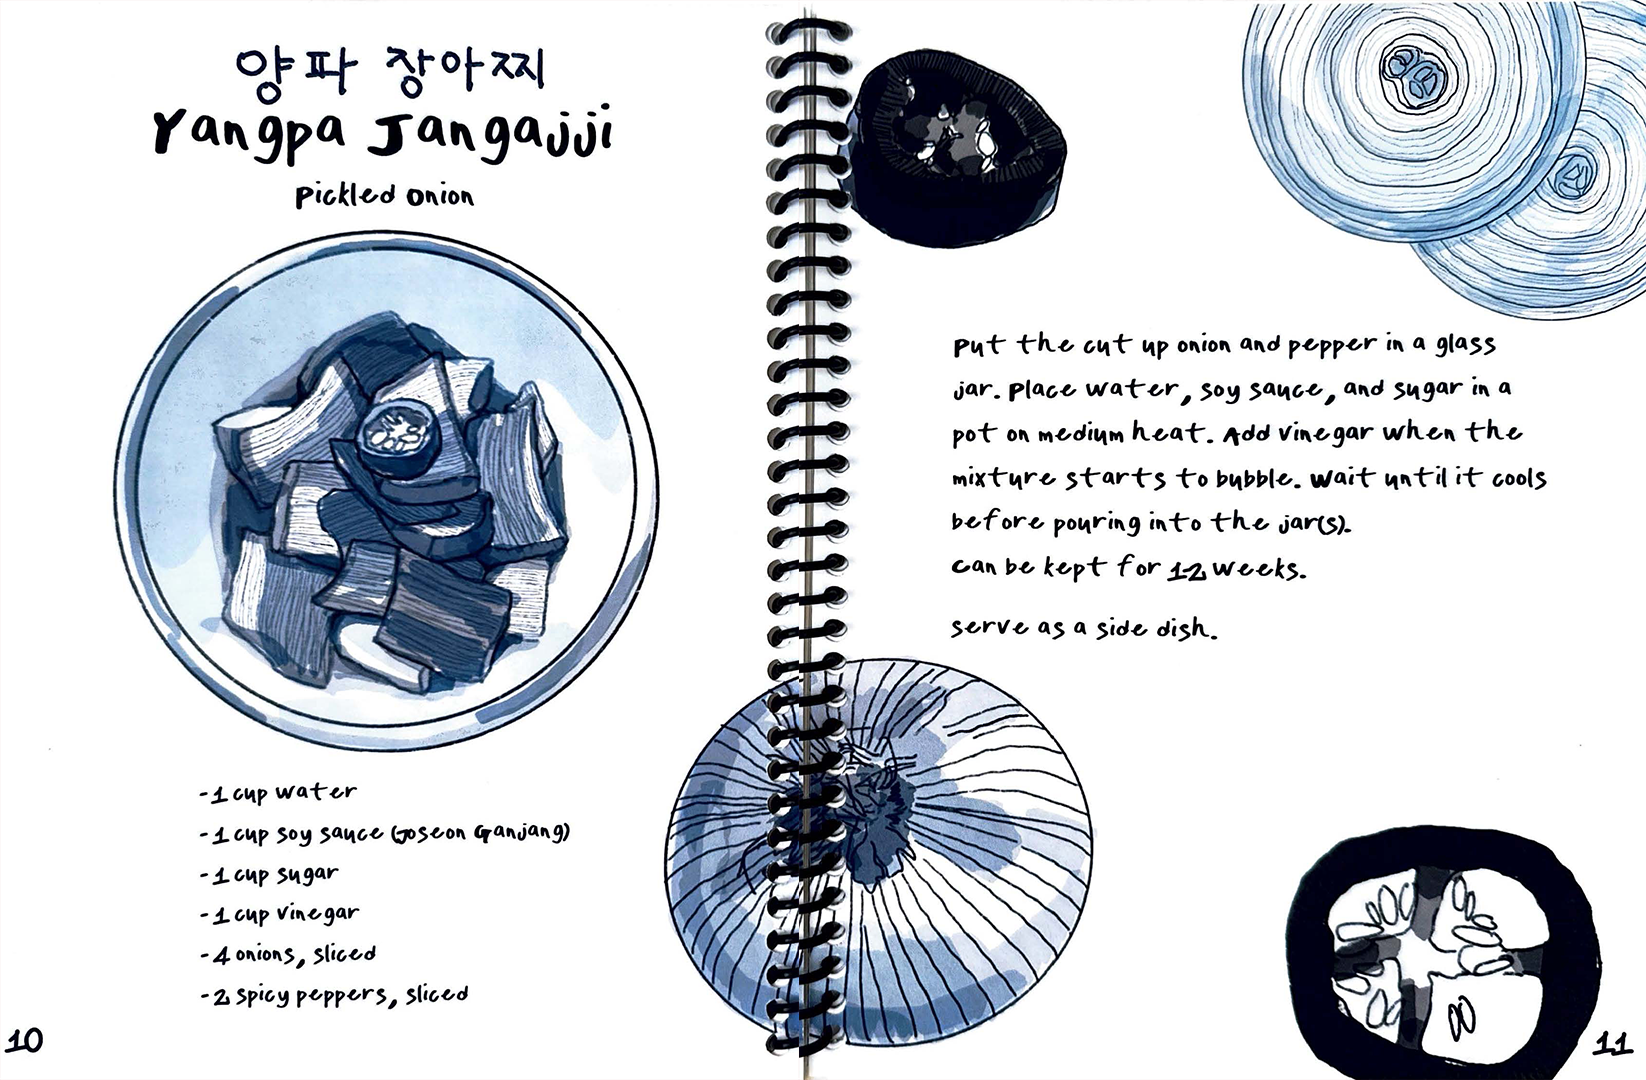 양파 장아찌
Yangpa Jangajji
Pickled Onion
-1 cup water
-1 cup soy sauce (Joseon Ganjang)
-1 cup sugar
-1 cup vinegar
-4 onions, sliced
-2 spicy peppers, sliced
10
Put the cut up onion and pepper in a glass
jar. Place water, soy sauce, and sugar in a
pot on medium heat. Add vinegar when the
mixture starts to bubble. Wait until it cools
before pouring into the jar(s).
Can be kept for 12 weeks.
Serve as a side dish.
11